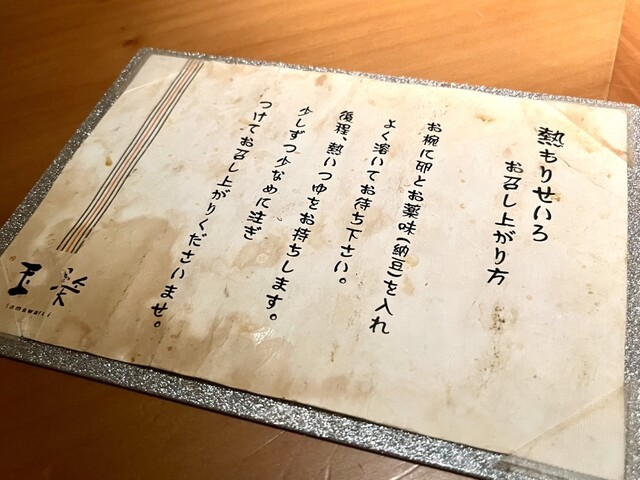 熱もりせいろ
お召し上がり方
お椀に卵とお薬味(納豆)を入れ
よく溶いてお待ち下さい。
後程、熱いつゆをお持ちします。
少しずつ少なめに注ぎ
つけてお召し上がりくださいませ。
玉笑
tamawarai